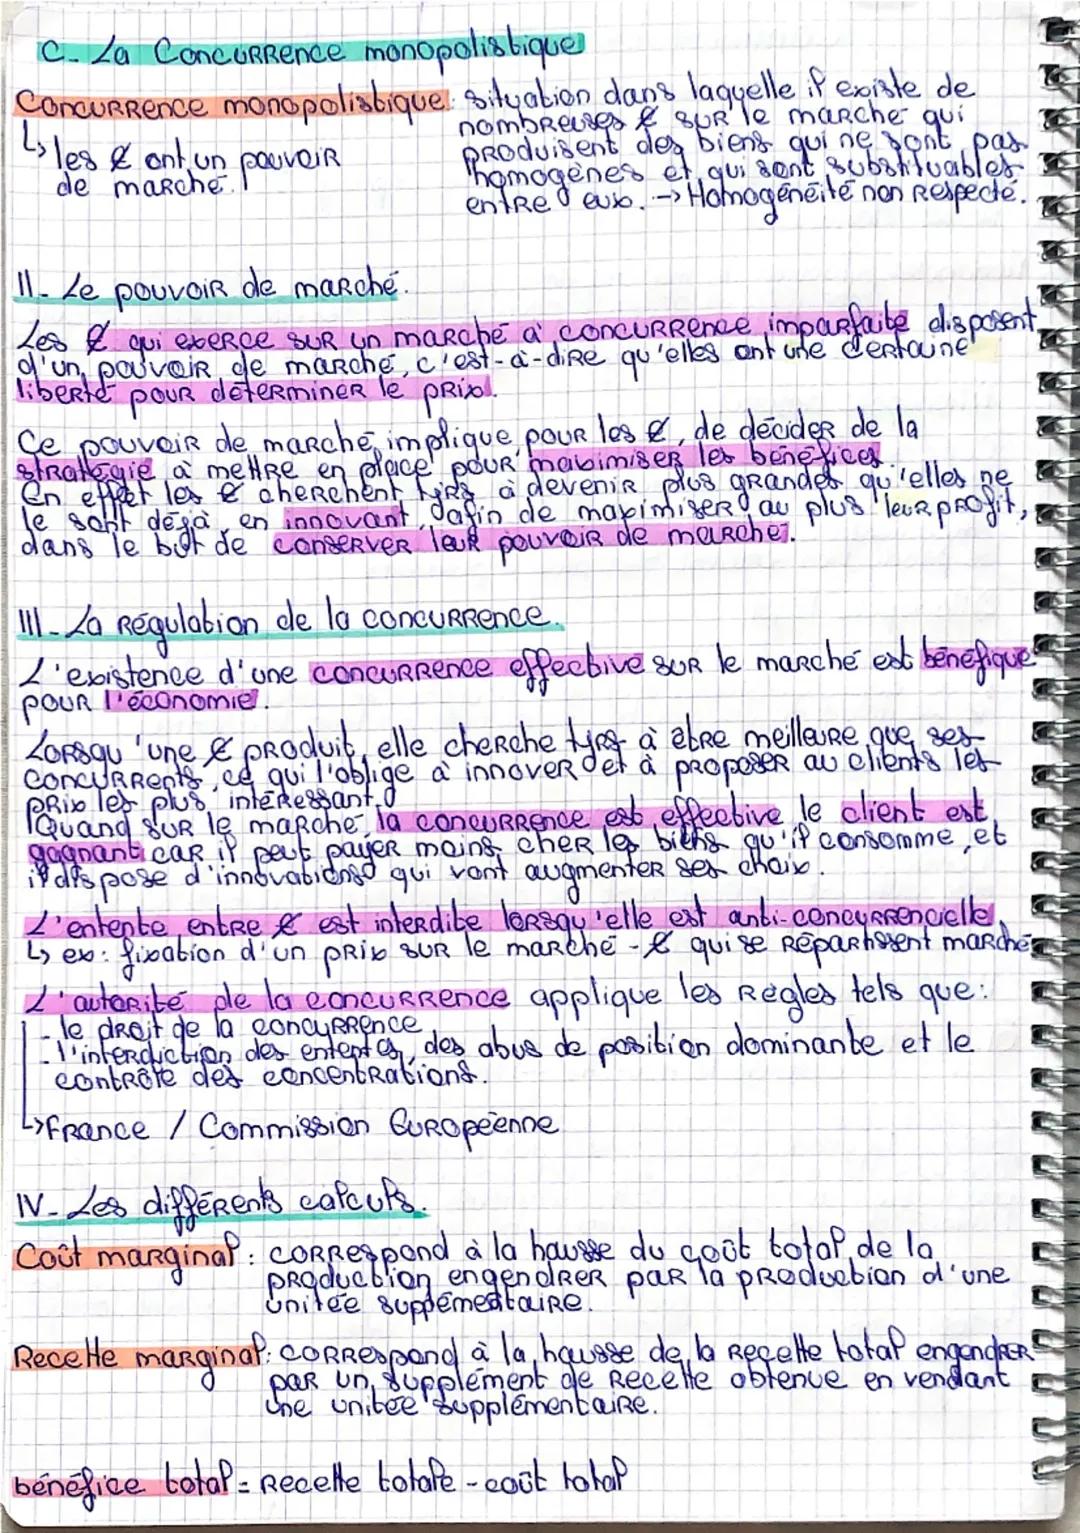 C- La Concurrence monopolistique
Concurrence monopolistique: situation dans laquelle il existe de
nombreuses € sur le marché qui
↳ les € ont un pouvoir
de marché.
produisent des biens qui ne sont pas
homogènes et qui sont substituables
entre eux. → Homogénéité non respecté.
II- Le pouvoir de marché.
Les € qui exerce sur un marché à concurrence imparfaite disposent
d'un pouvoir de marché, c'est-à-dire qu'elles ont une certaine
liberté pour déterminer le prix.
Ce pouvoir de marché implique pour les €, de décider de la
stratégie à mettre en place pour maximiser les bénéfices.
En effet les € cherchent tjrs à devenir plus grandes qu'elles ne
le sont déjà, en innovant, afin de maximiser au plus leur profit,
dans le but de conserver leur pouvoir de marché.
III- La régulation de la concurrence.
L'existence d'une concurrence effective sur le marché est bénéfique
pour l'économie.
Lorsqu'une € produit, elle cherche tjrs à être meilleure que ses
concurrents, ce qui l'oblige à innover et à proposer au clients les
prix les plus intéressant.
Quand sur le marché, la concurrence est effective le client est
gagnant car il peut payer moins cher les biens qu'il consomme, et
il dispose d'innovations qui vont augmenter ses choix.
L'entente entre € est interdite lorsqu'elle est anti-concurrencielle.
↳ ex: fixation d'un prix sur le marché - € qui se répartissent marché
L'autorité de la concurrence applique les règles tels que:
- le droit de la concurrence
- l'interdiction des ententes, des abus de position dominante et le
contrôle des concentrations.
↳ France / Commission Européenne
IV- Les différents calculs.
Coût marginal: correspond à la hausse du coût total de la
production engendrer par la production d'une
unitée supplémentaire.
Recette marginal: correspond à la hausse de la recette total engendrer
par un supplément de recette obtenue en vendant
une unitée supplémentaire.
bénéfice total = Recette totale - coût total